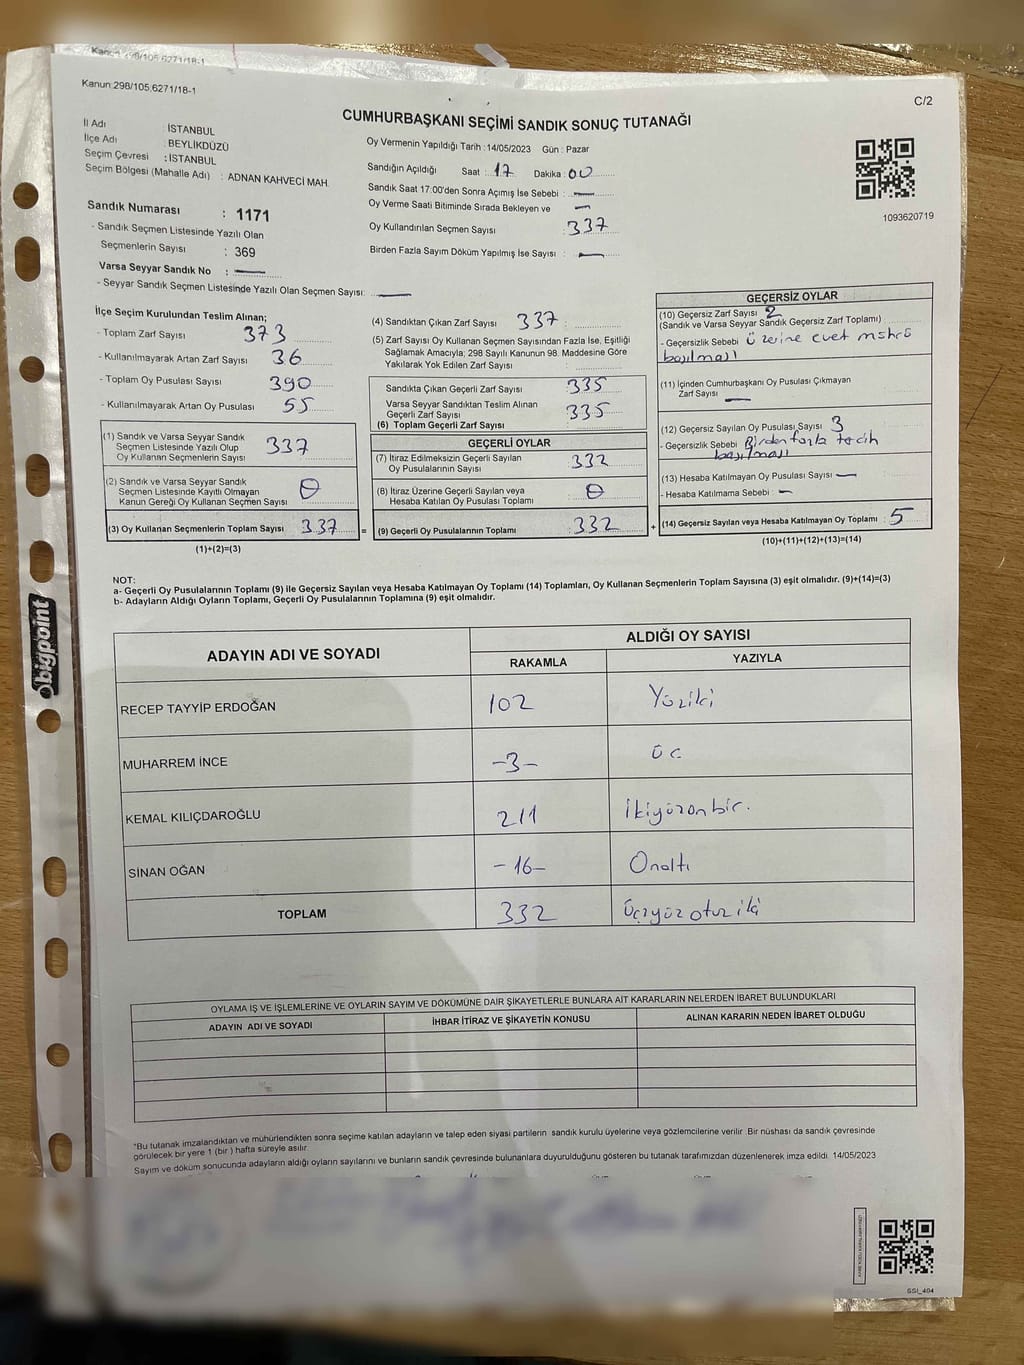 Kanun:298/105,6271/18-1
Kanun:298/105,6271/18-1
C/2
CUMHURBAŞKANI SEÇİMİ SANDIK SONUÇ TUTANAĞI
İl Adı : İSTANBUL
İlçe Adı : BEYLİKDÜZÜ
Seçim Çevresi : İSTANBUL
Seçim Bölgesi (Mahalle Adı) : ADNAN KAHVECİ MAH.
Sandık Numarası : 1171
- Sandık Seçmen Listesinde Yazılı Olan
Seçmenlerin Sayısı : 369
Varsa Seyyar Sandık No : —
- Seyyar Sandık Seçmen Listesinde Yazılı Olan Seçmen Sayısı: —
Oy Vermenin Yapıldığı Tarih :14/05/2023 Gün : Pazar
Sandığın Açıldığı Saat : 17 Dakika : 00
Sandık Saat 17:00'den Sonra Açılmış İse Sebebi : —
Oy Verme Saati Bitiminde Sırada Bekleyen ve —
Oy Kullandırılan Seçmen Sayısı : 337
Birden Fazla Sayım Döküm Yapılmış İse Sayısı : —
1093620719
İlçe Seçim Kurulundan Teslim Alınan;
- Toplam Zarf Sayısı 373
- Kullanılmayarak Artan Zarf Sayısı 36
- Toplam Oy Pusulası Sayısı 390
- Kullanılmayarak Artan Oy Pusulası 55
(1) Sandık ve Varsa Seyyar Sandık
Seçmen Listesinde Yazılı Olup
Oy Kullanan Seçmenlerin Sayısı 337
(2) Sandık ve Varsa Seyyar Sandık
Seçmen Listesinde Kayıtlı Olmayan
Kanun Gereği Oy Kullanan Seçmen Sayısı 0
(3) Oy Kullanan Seçmenlerin Toplam Sayısı 337 =
(1)+(2)=(3)
(4) Sandıktan Çıkan Zarf Sayısı 337
(5) Zarf Sayısı Oy Kullanan Seçmen Sayısından Fazla İse, Eşitliği
Sağlamak Amacıyla; 298 Sayılı Kanunun 98. Maddesine Göre
Yakılarak Yok Edilen Zarf Sayısı :
Sandıkta Çıkan Geçerli Zarf Sayısı : 335
Varsa Seyyar Sandıktan Teslim Alınan
Geçerli Zarf Sayısı : 335
(6) Toplam Geçerli Zarf Sayısı
GEÇERLİ OYLAR
(7) İtiraz Edilmeksizin Geçerli Sayılan
Oy Pusulalarının Sayısı : 332
(8) İtiraz Üzerine Geçerli Sayılan veya
Hesaba Katılan Oy Pusulası Toplamı : 0
(9) Geçerli Oy Pusulalarının Toplamı : 332 +
GEÇERSİZ OYLAR
(10) Geçersiz Zarf Sayısı 2
(Sandık ve Varsa Seyyar Sandık Geçersiz Zarf Toplamı)
- Geçersizlik Sebebi Üzerine evet mührü
basılması
(11) İçinden Cumhurbaşkanı Oy Pusulası Çıkmayan
Zarf Sayısı —
(12) Geçersiz Sayılan Oy Pusulası Sayısı 3
- Geçersizlik Sebebi Birden fazla tercih
basılması
(13) Hesaba Katılmayan Oy Pusulası Sayısı —
- Hesaba Katılmama Sebebi : —
(14) Geçersiz Sayılan veya Hesaba Katılmayan Oy Toplamı : 5
(10)+(11)+(12)+(13)=(14)
NOT:
a- Geçerli Oy Pusulalarının Toplamı (9) ile Geçersiz Sayılan veya Hesaba Katılmayan Oy Toplamı (14) Toplamları, Oy Kullanan Seçmenlerin Toplam Sayısına (3) eşit olmalıdır. (9)+(14)=(3)
b- Adayların Aldığı Oyların Toplamı, Geçerli Oy Pusulalarının Toplamına (9) eşit olmalıdır.
ADAYIN ADI VE SOYADI
ALDIĞI OY SAYISI
RAKAMLA YAZIYLA
RECEP TAYYİP ERDOĞAN 102 Yüziki
MUHARREM İNCE -3- üç
KEMAL KILIÇDAROĞLU 211 İkiyüzonbir.
SİNAN OĞAN -16- Onaltı
TOPLAM 332 Üçyüzotuziki
OYLAMA İŞ VE İŞLEMLERİNE VE OYLARIN SAYIM VE DÖKÜMÜNE DAİR ŞİKAYETLERLE BUNLARA AİT KARARLARIN NELERDEN İBARET BULUNDUKLARI
ADAYIN ADI VE SOYADI İHBAR İTİRAZ VE ŞİKAYETİN KONUSU ALINAN KARARIN NEDEN İBARET OLDUĞU
*Bu tutanak imzalandıktan ve mühürlendikten sonra seçime katılan adayların ve talep eden siyasi partilerin sandık kurulu üyelerine veya gözlemcilerine verilir. Bir nüshası da sandık çevresinde
görülecek bir yere 1 (bir ) hafta süreyle asılır.
Sayım ve döküm sonucunda adayların aldığı oyların sayılarını ve bunların sandık çevresinde bulunanlara duyurulduğunu gösteren bu tutanak tarafımızdan düzenlenerek imza edildi. 14/05/2023
bigpoint
GSI_404